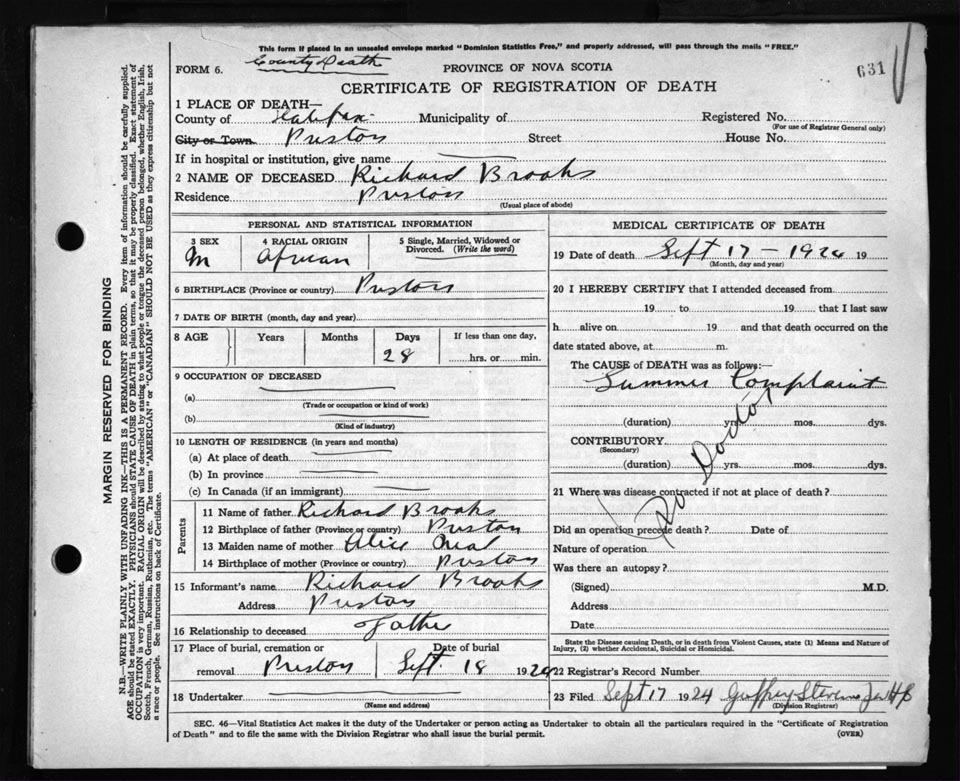 This form if placed in an unsealed envelope marked "Dominion Statistics Free," and properly addressed, will pass through the mails "FREE."
County Death
FORM 6.
PROVINCE OF NOVA SCOTIA
631
CERTIFICATE OF REGISTRATION OF DEATH
1 PLACE OF DEATH—
County of Halifax Municipality of Registered No.
(For use of Registrar General only)
City or Town Preston Street House No.
If in hospital or institution, give name
2 NAME OF DECEASED Richard Brooks
Residence Preston
(Usual place of abode)
PERSONAL AND STATISTICAL INFORMATION
3 SEX 4 RACIAL ORIGIN 5 Single, Married, Widowed or Divorced. (Write the word)
M African
6 BIRTHPLACE (Province or country) Preston
7 DATE OF BIRTH (month, day and year)
8 AGE Years Months Days If less than one day,
28 hrs. or min.
9 OCCUPATION OF DECEASED
(a)
(Trade or occupation or kind of work)
(b)
(Kind of industry)
10 LENGTH OF RESIDENCE (in years and months)
(a) At place of death
(b) In province
(c) In Canada (if an immigrant)
Parents
11 Name of father Richard Brooks
12 Birthplace of father (Province or country) Preston
13 Maiden name of mother Alice
14 Birthplace of mother (Province or country) Preston
15 Informant's name Richard Brooks
Address Preston
16 Relationship to deceased Father
17 Place of burial, cremation or removal Preston Date of burial Sept. 18 1924
18 Undertaker
(Name and address)
MEDICAL CERTIFICATE OF DEATH
19 Date of death Sept 17 - 1924 19
(Month, day and year)
20 I HEREBY CERTIFY that I attended deceased from
19 to 19 that I last saw
h alive on 19 and that death occurred on the
date stated above, at m.
The CAUSE of DEATH was as follows:—
Summer Complaint
(duration) yrs. mos. dys.
CONTRIBUTORY
(Secondary)
(duration) yrs. mos. dys.
No Doctor
21 Where was disease contracted if not at place of death?
Did an operation precede death? Date of
Nature of operation
Was there an autopsy?
(Signed) M.D.
Address
Date
State the Disease causing Death, or in death from Violent Causes, state (1) Means and Nature of Injury, (2) whether Accidental, Suicidal or Homicidal.
22 Registrar's Record Number
23 Filed Sept 17 1924
(Division Registrar)
SEC. 46—Vital Statistics Act makes it the duty of the Undertaker or person acting as Undertaker to obtain all the particulars required in the "Certificate of Registration
of Death" and to file the same with the Division Registrar who shall issue the burial permit.
(OVER)
MARGIN RESERVED FOR BINDING
N.B.—WRITE PLAINLY WITH UNFADING INK—THIS IS A PERMANENT RECORD. Every item of information should be carefully supplied.
AGE should be stated EXACTLY. PHYSICIANS should STATE CAUSE OF DEATH in plain terms, so that it may be properly classified. Exact statement of
OCCUPATION is very important. RACIAL ORIGIN will be described by stating to what people or tongue the deceased person belonged, whether English, Irish,
Scotch, French, German, Russian, Ruthenian, etc. The terms "AMERICAN" or "CANADIAN" SHOULD NOT BE USED as they express citizenship but not
a race or people. See instructions on back of Certificate.